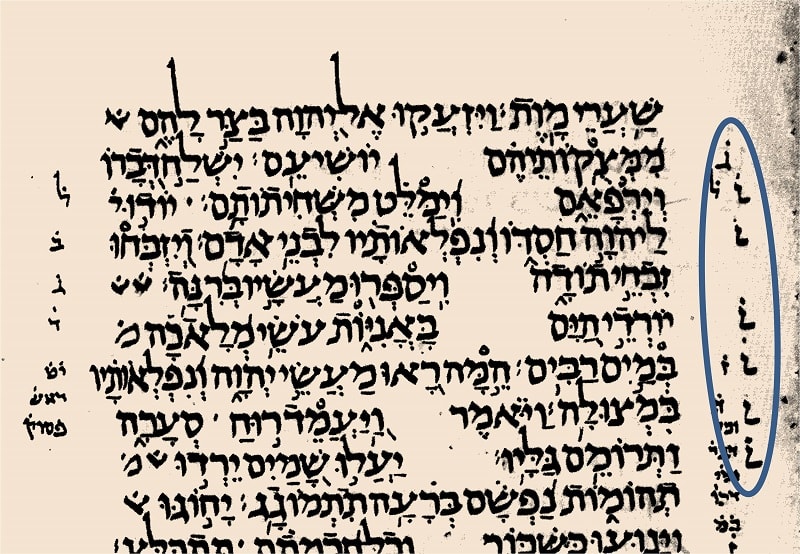 שַׁעֲרֵי מָוֶת׃ וַיִּזְעֲקוּ אֶל יְהוָה בַּצַּר לָהֶם
מִמְּצֻקוֹתֵיהֶם יוֹשִׁיעֵם׃ יִשְׁלַח דְּבָרוֹ
וְיִרְפָּאֵם וִימַלֵּט מִשְּׁחִיתוֹתָם׃ יוֹדוּ
לַיהוָה חַסְדּוֹ וְנִפְלְאוֹתָיו לִבְנֵי אָדָם׃ וְיִזְבְּחוּ
זִבְחֵי תוֹדָה וִיסַפְּרוּ מַעֲשָׂיו בְּרִנָּה׃
יוֹרְדֵי הַיָּם בָּאֳנִיּוֹת עֹשֵׂי מְלָאכָה
בְּמַיִם רַבִּים׃ הֵמָּה רָאוּ מַעֲשֵׂי יְהוָה וְנִפְלְאוֹתָיו
בִּמְצוּלָה׃ וַיֹּאמֶר וַיַּעֲמֵד רוּחַ סְעָרָה
וַתְּרוֹמֵם גַּלָּיו׃ יַעֲלוּ שָׁמַיִם יֵרְדוּ
תְהוֹמוֹת נַפְשָׁם בְּרָעָה תִתְמוֹגָג׃ יָחוֹגּוּ
וְיָנוּעוּ כַּשִּׁכּוֹר וְכָל חָכְמָתָם תִּתְבַּלָּע׃
ל
ב
ג
ד
יט
ראש
פסוק